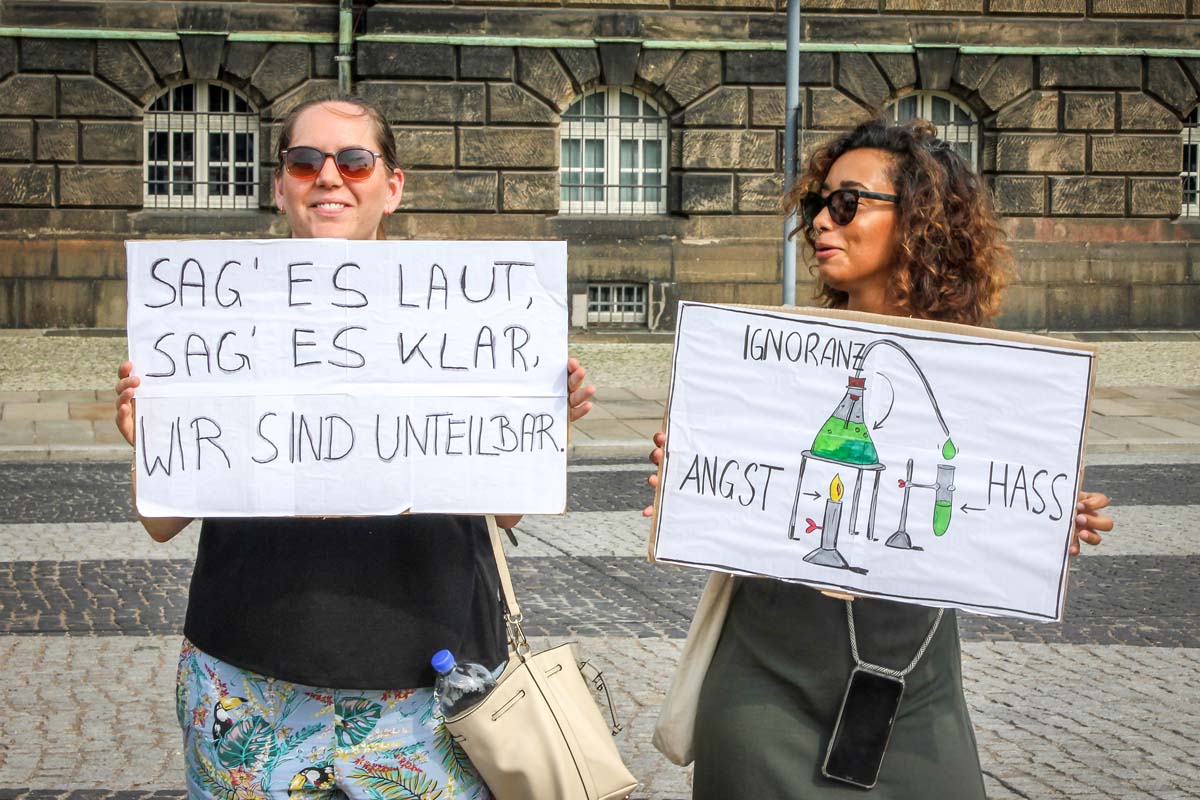 SAG' ES LAUT,
SAG' ES KLAR,
WIR SIND UNTEILBAR.
IGNORANZ
ANGST
HASS